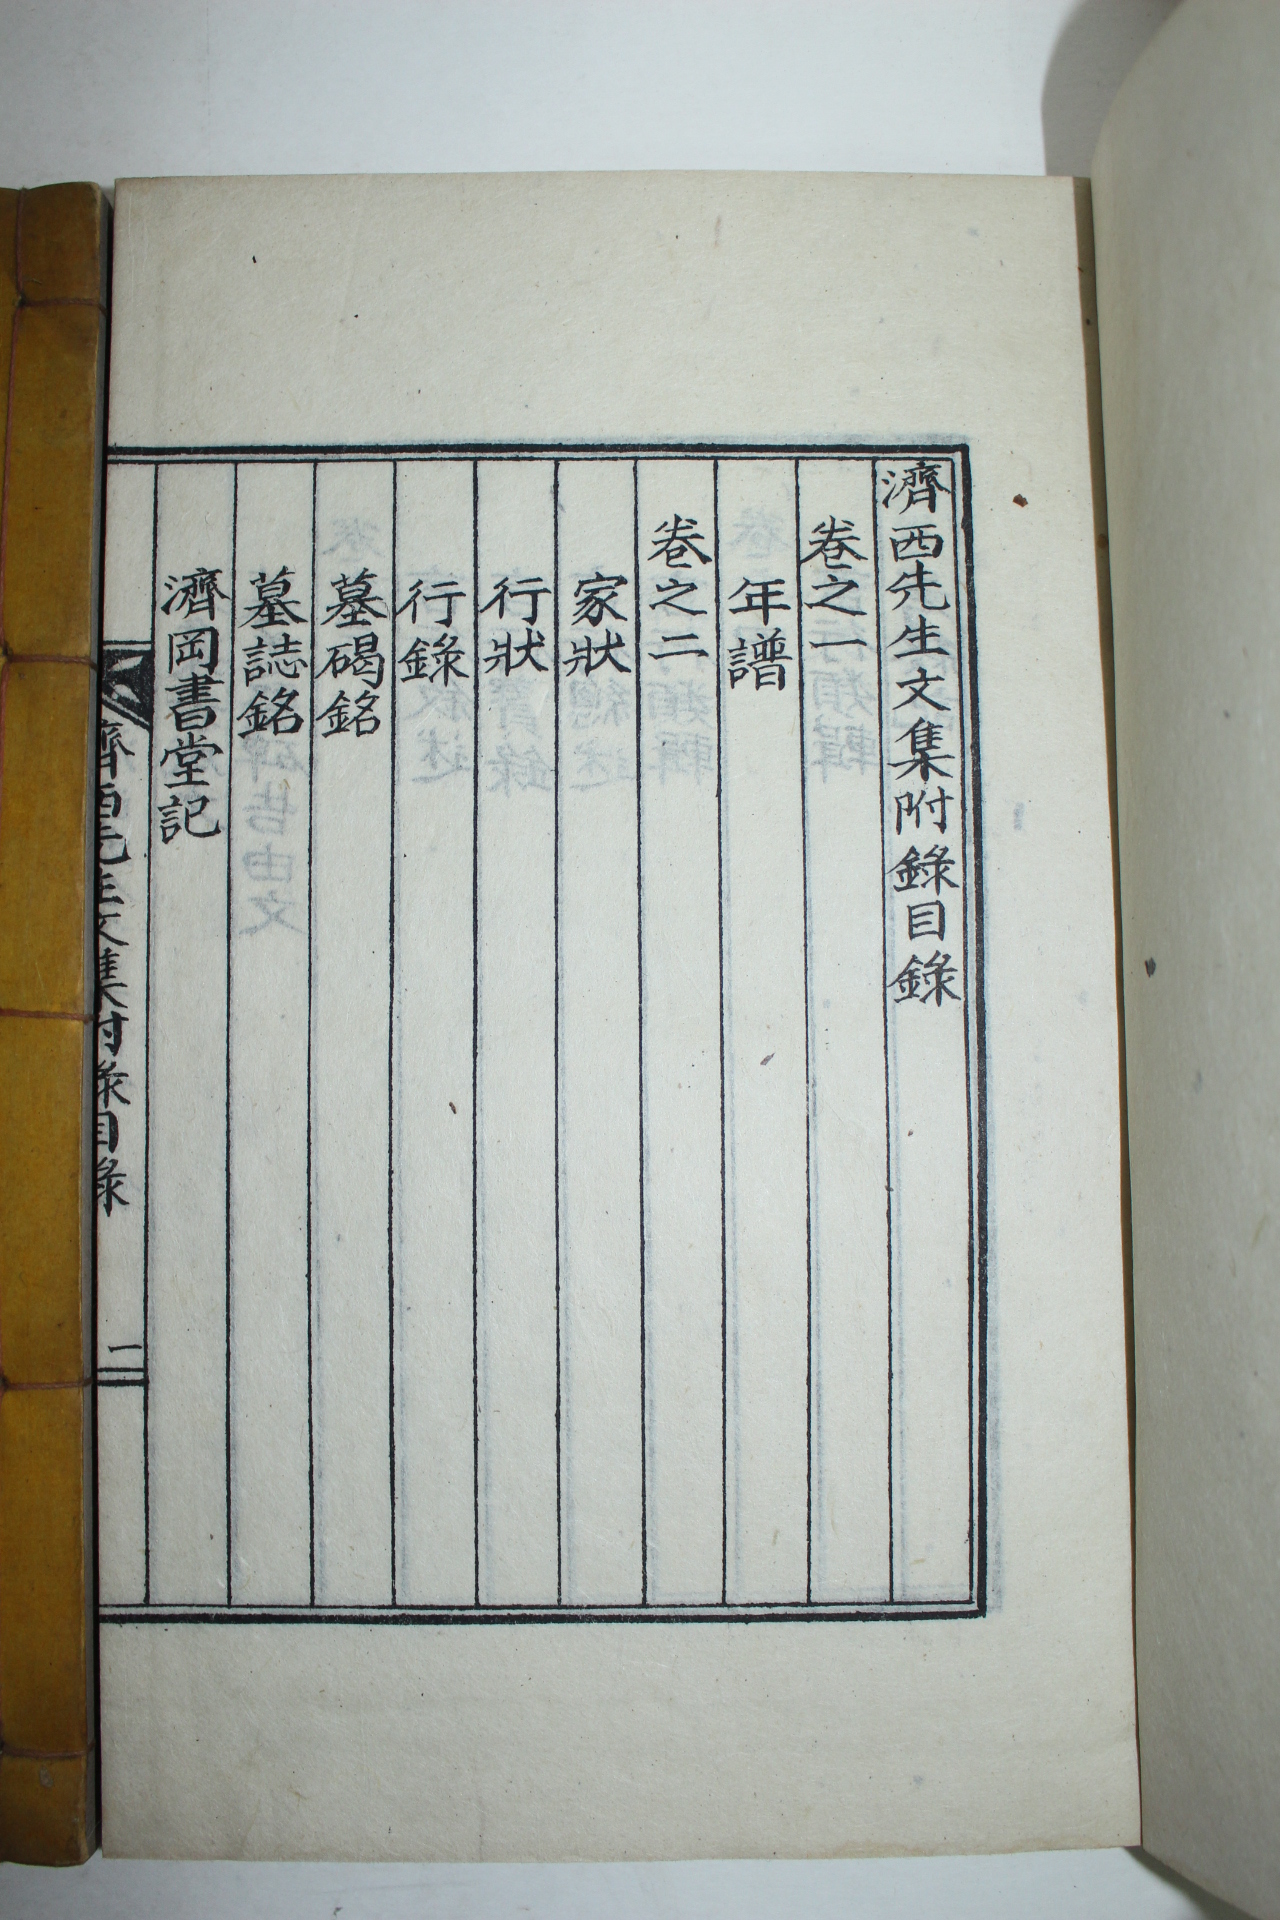 濟西先生文集附錄目錄
卷之一
年譜
卷之二
家狀
行狀
行錄
墓碣銘
墓誌銘
濟岡書堂記
濟西先生文集附錄目錄
一